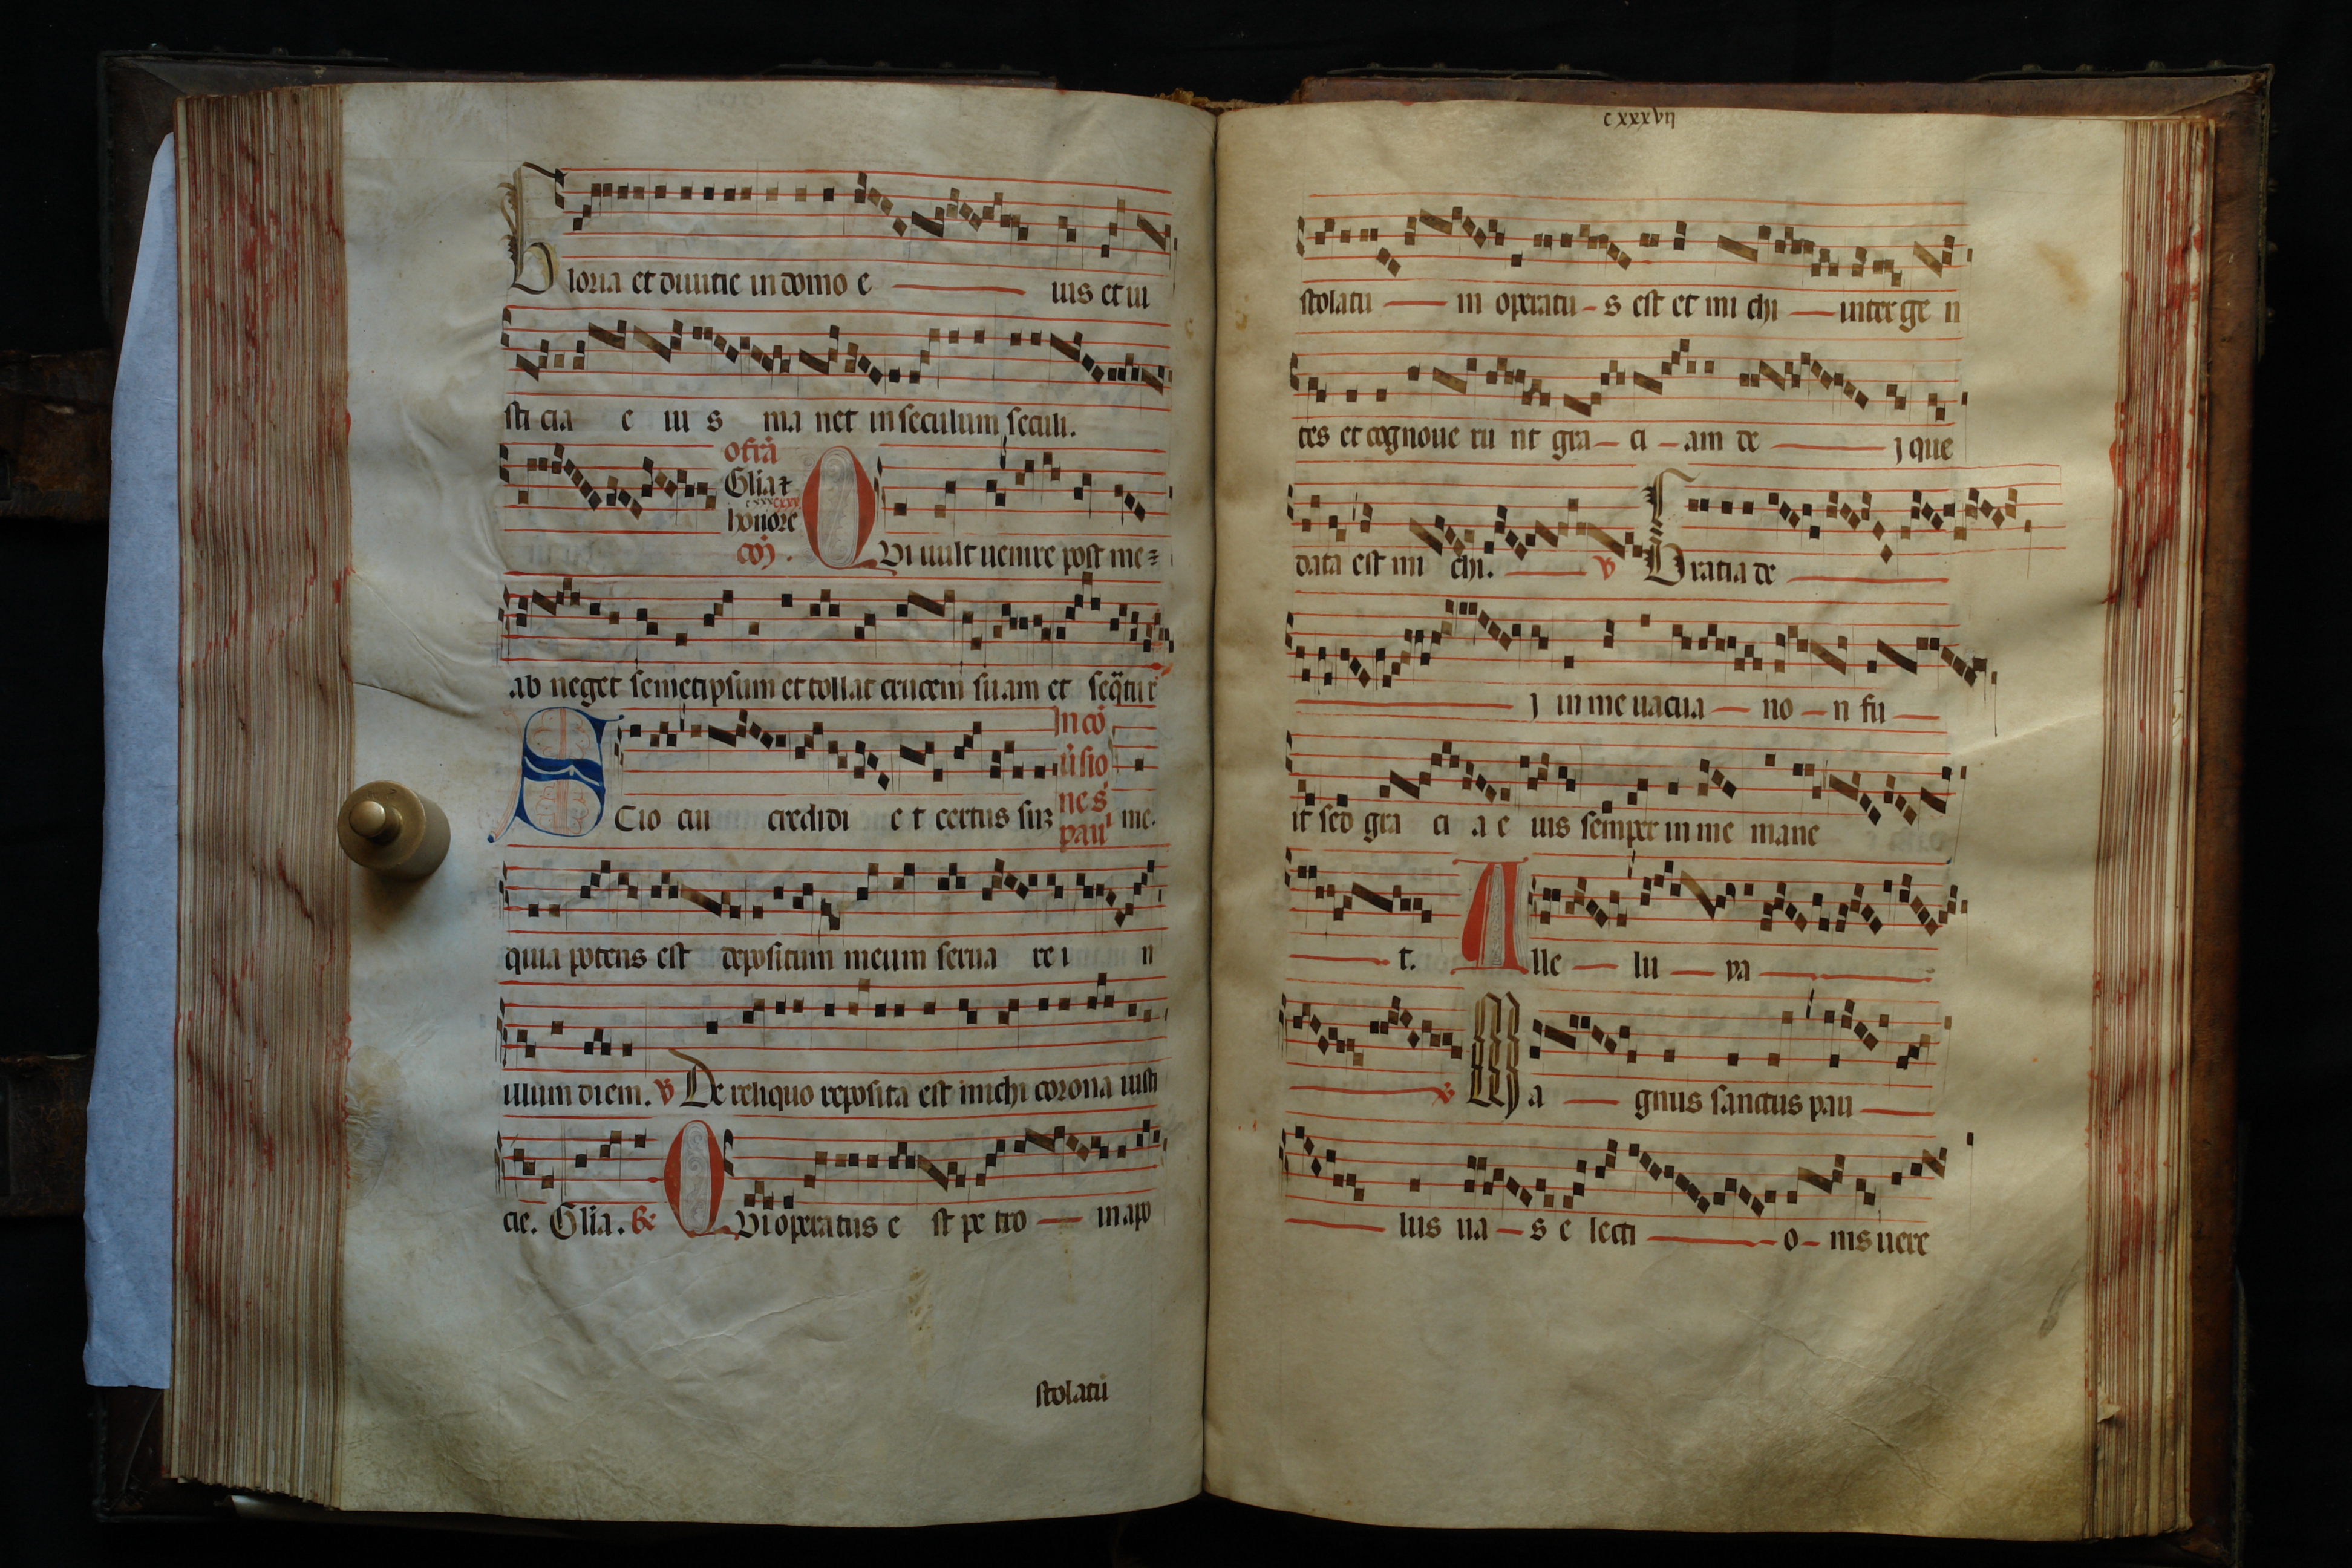 Gloria et diuitie in domo e uis et iu
sti cia e iu s ma net in seculum seculi.
offrā
Glia ⁊
honore
coj̄.
QVi uult uenire post me
ab neget semetipsum et tollat crucem suam et seq̄tur
In cō
ūsio
ne s̄
pauƚ
SCio cui credidi e t certus suʒ me.
quia potens est depositum meum serua re i n
illum diem. v De reliquo reposita est michi corona iusti
cie. Glia. Gͤ QVi operatus e st pe tro in apo
stolatū
cxxxvij
stolatu m operatu s est et mi chi inter ge n
tes et cognoue ru nt gra ci am de j que
data est mi chi. v Gratia de
j in me uacua no n fu
it sed gra ci a e uis semper in me mane
t. Alle lu ya
v Ma gnus sanctus pau
lus ua s e lecti o nis uere